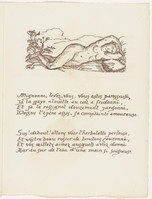 Mignonne, levés-vous, vous estes paresseuse,
Ja la gaye alouette au ciel a fredonné,
Et ja le rossignol doucement jargonné,
Dessus l'espine assis, sa complainte amoureuse.
Sus! debout! allons voir l'herbelette perleuse,
Et vostre beau rosier de boutons couronné,
Et vos œillets aimés ausquels aviés donné
Hier au soir de l'eau d'une main si soigneuse.